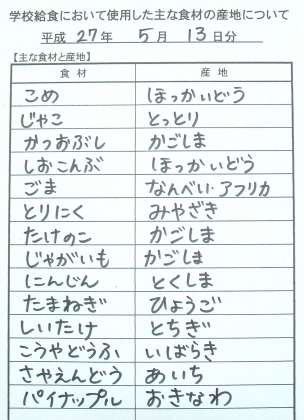 学校給食において使用した主な食材の産地について
平成 27年 5月 13日分
【主な食材と産地】
食材 産地
こめ ほっかいどう
じゃこ とっとり
かつおぶし かごしま
しおこんぶ ほっかいどう
ごま なんべい・アフリカ
とりにく みやざき
たけのこ かごしま
じゃがいも かごしま
にんじん とくしま
たまねぎ ひょうご
しいたけ とちぎ
こうやどうふ いばらき
さやえんどう あいち
パイナップル おきなわ